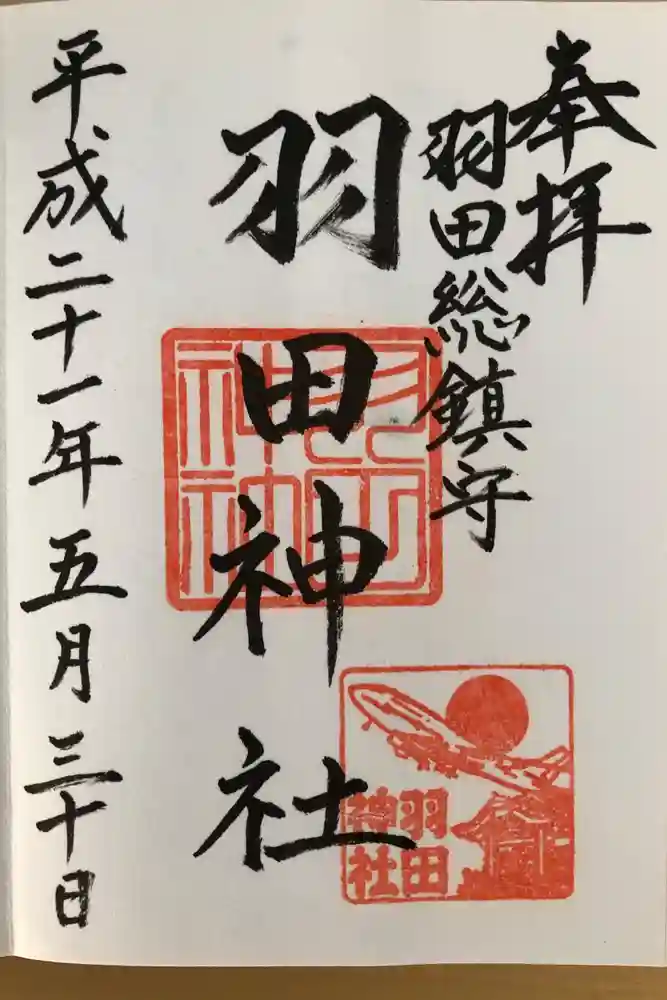 奉拝
羽田総鎮守
羽田神社
平成二十一年五月三十日
羽田
神社
羽田
神社